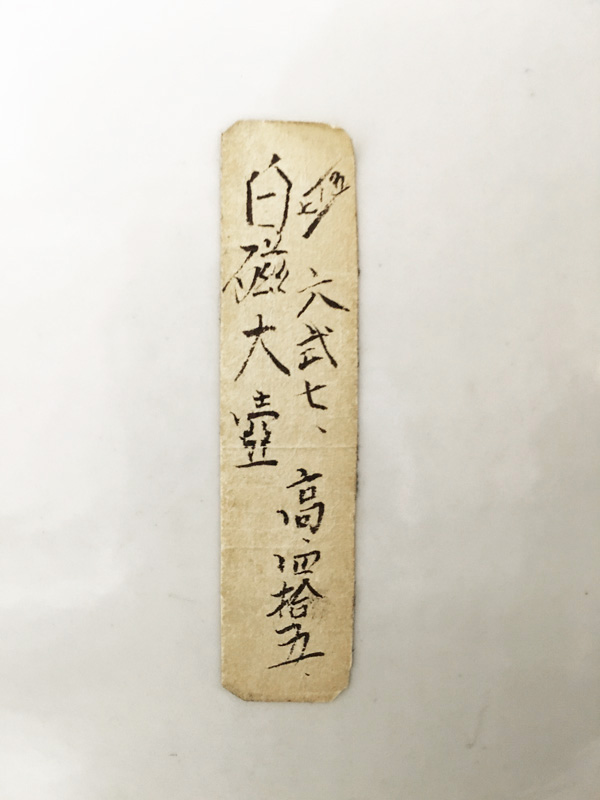 六弍七、
高、四拾五、
白磁大壺